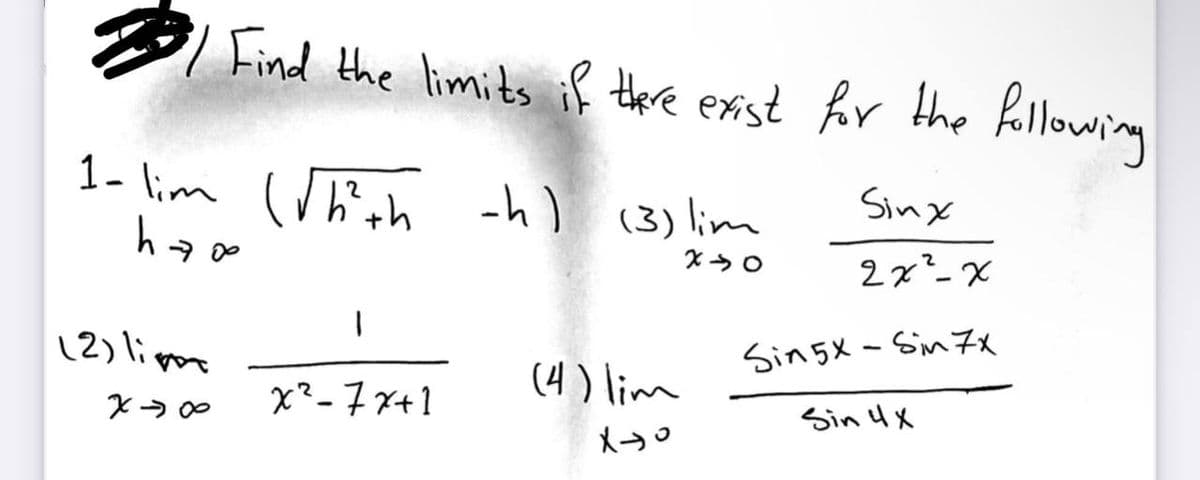 / Find the limits if there exist for the following
1- lim h→∞ (√h²+h -h)
(2) lim x→∞ 1/(x²-7x+1)
(3) lim x→0 Sinx/(2x²-x)
(4) lim x→0 (Sin5x - Sin7x)/(Sin4x)